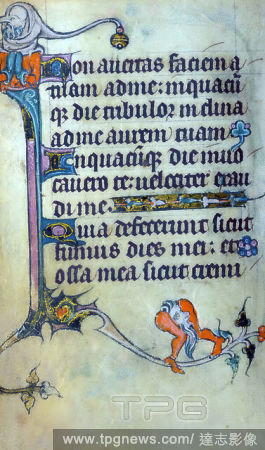 Non avertas faciem a
tuam a d me: in quacu
q̃ die tribulor inclina
ad me aurem tuam
In quacũq̃ die invo
cavero te: velociter exau
di me.
Quia defecerunt sicut
fumus dies mei: et
ossa mea sicut cremi
TPG
www.tpgnews.com/ 達志影像